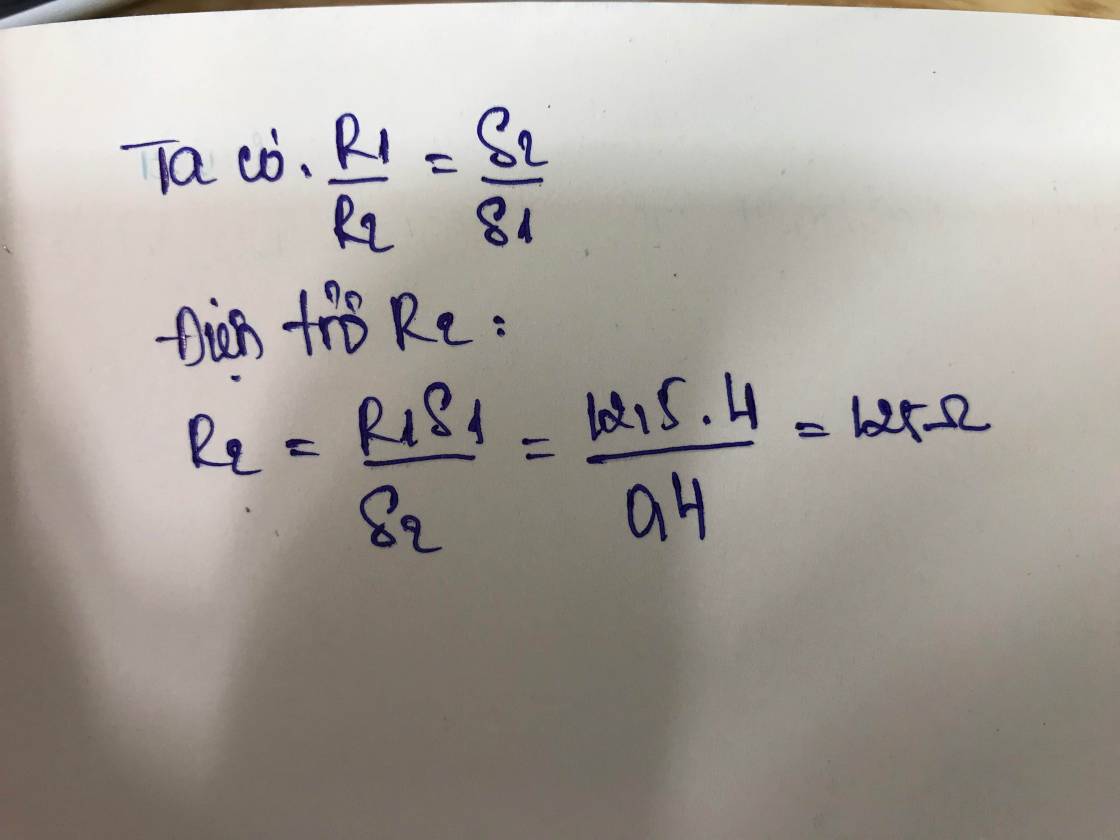 Ta có. R1/R2 = S2/S1
Điện trở R2 :
R2 = R1S1/S2 = 12,5 . 4/0,4 = 125Ω